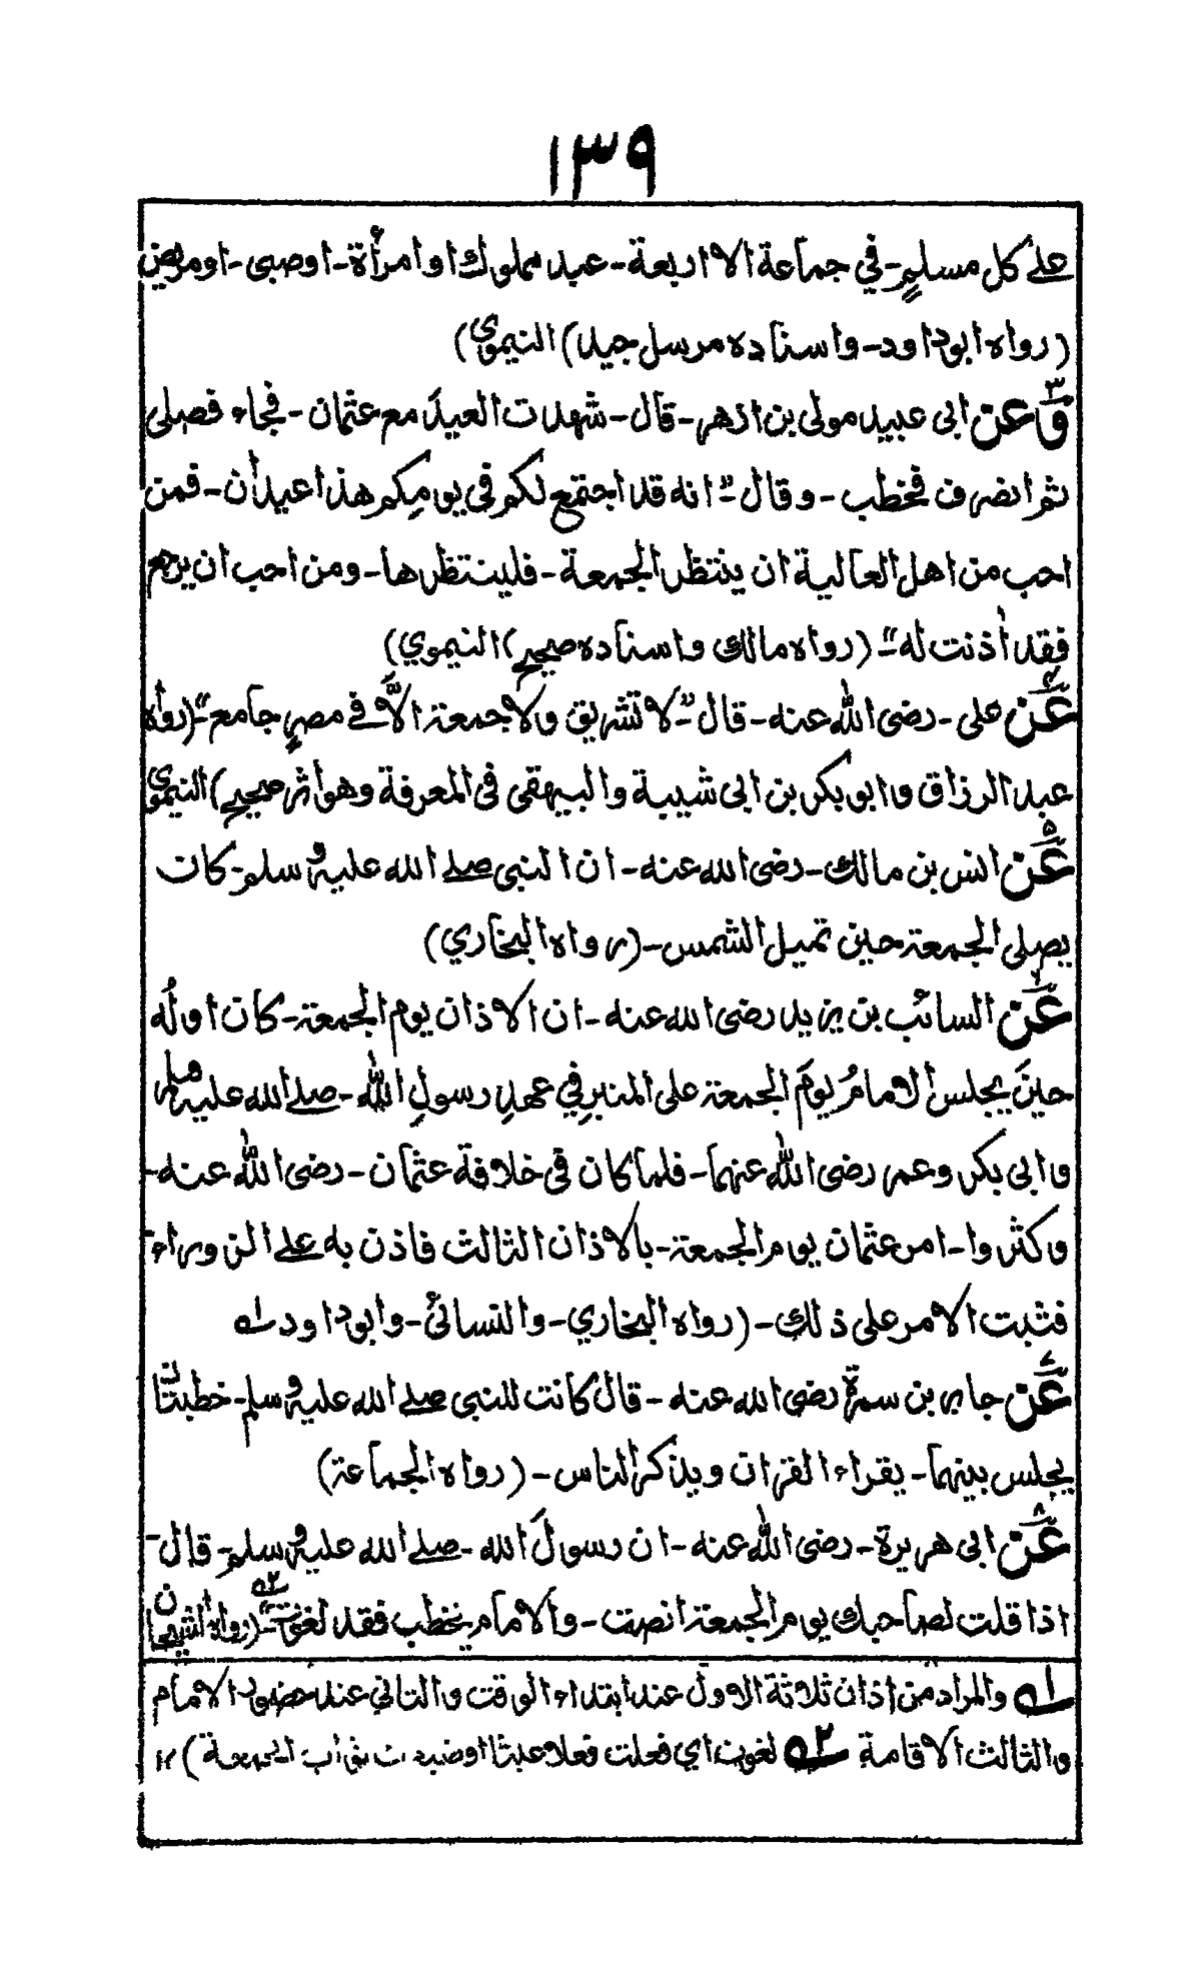 ١٣٩
علے كل مسلمٍ - في جماعة الا اربعة - عبد مملوك او امرأة - او صبى - او مريض
(رواه ابوداود - واسناده مرسل جيد) النيموي)
٣ وعن ابى عبيد مولى بن ازهر - قال - شهدت العيدَ مع عثمان - فجاء فصلى
ثم انصرف فخطب - وقال - "انه قد اجتمع لكم في يومِكم هذا عيدان - فمن
احب من اهل العالية ان ينتظر الجمعة - فلينتظرها - ومن احب ان يرجع
فقد أذنت له" - (رواه مالك واسناده صحيح) النيموي)
٤ عن على - رضى الله عنه - قال - "لا تشريق ولا جمعة الاَّ في مصرٍ جامع" - (رواه
عبد الرزاق وابوبكر بن ابى شيبة والبيهقى فى المعرفة وهو أثر صحيح) النيموي
٥ عن انس بن مالك - رضى الله عنه - ان النبى صلے الله عليه وسلم - كان
يصلى الجمعة حين تميل الشمس - (رواه البخاري)
٦ عن السائب بن يزيد رضى الله عنه - ان الاذان يوم الجمعة - كان اولُه
حينَ يجلس الامامُ يومَ الجمعة على المنبرِ في عهدِ رسولِ الله - صلے الله عليه وسلم
وابى بكر وعمر رضى الله عنهما - فلما كان فى خلافة عثمان - رضى الله عنه -
وكثروا - امر عثمان يوم الجمعة - بالاذان الثالث فاذن به علے الزوراء -
فثبت الامر على ذلك - (رواه البخاري - والنسائى - وابوداود له١
٧ عن جابر بن سمرة رضى الله عنه - قال كانت للنبى صلے الله عليه وسلم - خطبتان
يجلس بينهما - يقراء القران ويذكر الناس - (رواه الجماعة)
٨ عن ابى هريرة - رضى الله عنه - ان رسولَ الله - صلے الله عليه وسلم - قال -
اذا قلت لصاحبك يوم الجمعة انصت - والامام يخطب فقد لغوت" ٢ه - (رواه الشيخان
١ه والمراد من اذان ثلاثة الاول عند ابتداء الوقت والثاني عند حضور الامام
والثالث الاقامة ٢ه لغوت اي فعلت فعلا عبثا او ضيعت ثواب الجمعة) ١٢